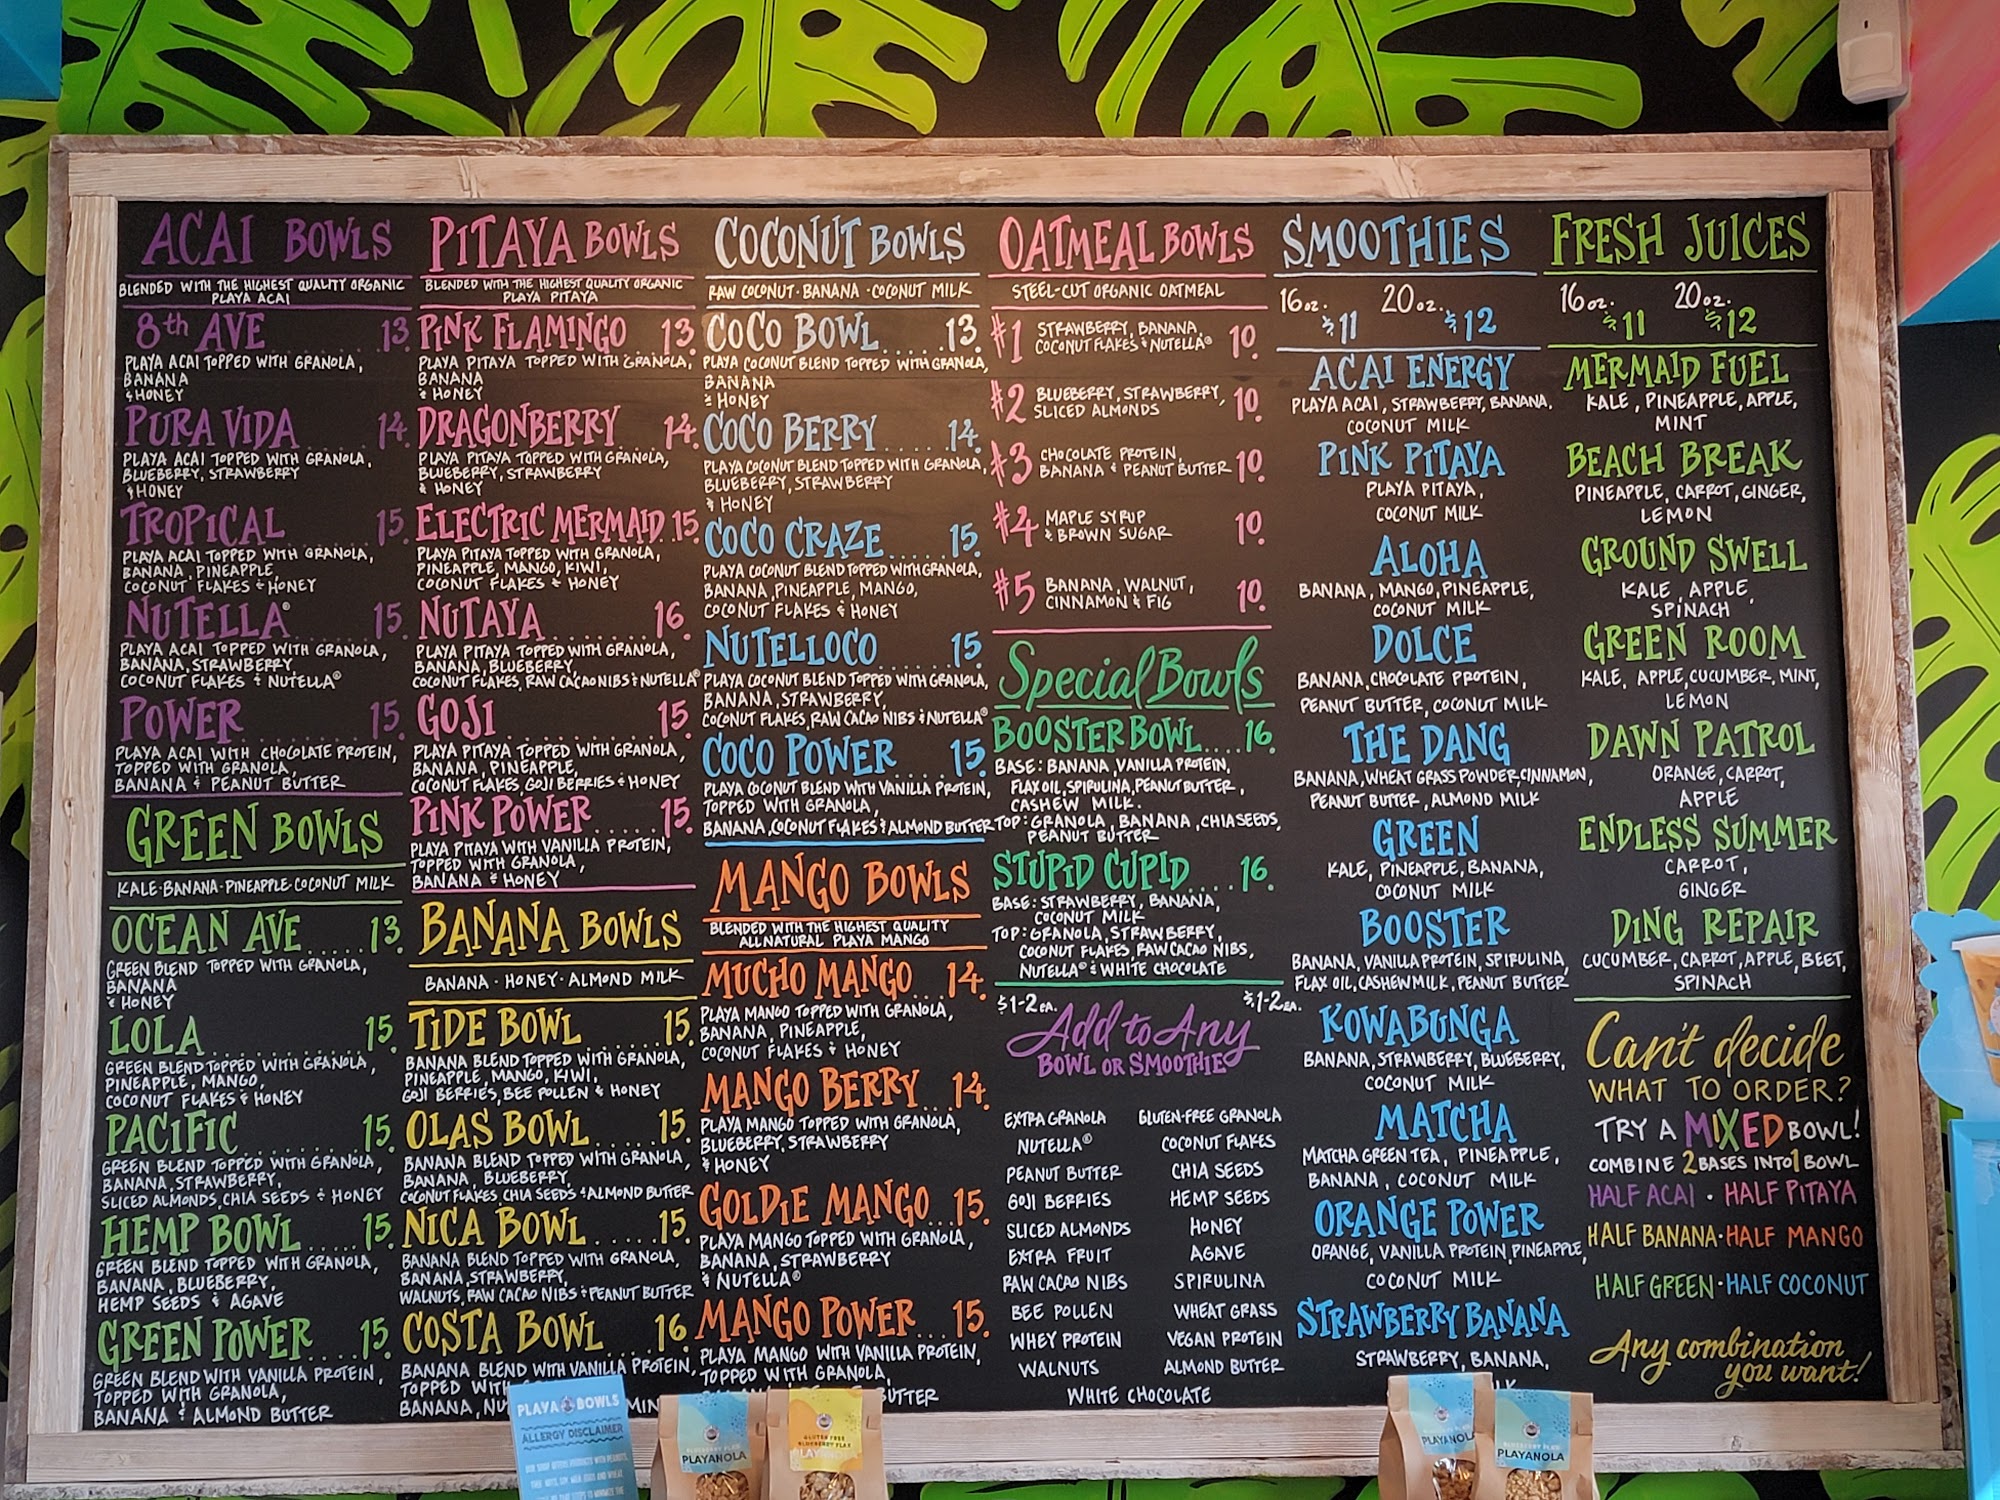 ACAI BOWLS
BLENDED WITH THE HIGHEST QUALITY ORGANIC
PLAYA ACAI
8th AVE 13.
PLAYA ACAI TOPPED WITH GRANOLA,
BANANA
& HONEY
PURA VIDA 14.
PLAYA ACAI TOPPED WITH GRANOLA,
BLUEBERRY, STRAWBERRY
& HONEY
TROPICAL 15.
PLAYA ACAI TOPPED WITH GRANOLA,
BANANA, PINEAPPLE,
COCONUT FLAKES & HONEY
NUTELLA® 15.
PLAYA ACAI TOPPED WITH GRANOLA,
BANANA, STRAWBERRY
COCONUT FLAKES & NUTELLA®
POWER 15.
PLAYA ACAI WITH CHOCOLATE PROTEIN,
TOPPED WITH GRANOLA,
BANANA & PEANUT BUTTER
GREEN BOWLS
KALE·BANANA·PINEAPPLE·COCONUT MILK
OCEAN AVE.....13.
GREEN BLEND TOPPED WITH GRANOLA,
BANANA
& HONEY
LOLA 15.
GREEN BLEND TOPPED WITH GRANOLA,
PINEAPPLE, MANGO,
COCONUT FLAKES & HONEY
PACIFIC 15.
GREEN BLEND TOPPED WITH GRANOLA,
BANANA, STRAWBERRY,
SLICED ALMONDS, CHIA SEEDS & HONEY
HEMP BOWL 15.
GREEN BLEND TOPPED WITH GRANOLA,
BANANA, BLUEBERRY,
HEMP SEEDS & AGAVE
GREEN POWER....15.
GREEN BLEND WITH VANILLA PROTEIN,
TOPPED WITH GRANOLA,
BANANA & ALMOND BUTTER
PITAYA BOWLS
BLENDED WITH THE HIGHEST QUALITY ORGANIC
PLAYA PITAYA
PINK FLAMINGO 13.
PLAYA PITAYA TOPPED WITH GRANOLA,
BANANA
& HONEY
DRAGONBERRY 14.
PLAYA PITAYA TOPPED WITH GRANOLA,
BLUEBERRY, STRAWBERRY
& HONEY
ELECTRIC MERMAID 15.
PLAYA PITAYA TOPPED WITH GRANOLA,
PINEAPPLE, MANGO, KIWI,
COCONUT FLAKES & HONEY
NUTAYA 16.
PLAYA PITAYA TOPPED WITH GRANOLA,
BANANA, BLUEBERRY,
COCONUT FLAKES, RAW CACAO NIBS & NUTELLA®
GOJI 15.
PLAYA PITAYA TOPPED WITH GRANOLA,
BANANA, PINEAPPLE,
COCONUT FLAKES, GOJI BERRIES & HONEY
PINK POWER 15.
PLAYA PITAYA WITH VANILLA PROTEIN,
TOPPED WITH GRANOLA,
BANANA & HONEY
BANANA BOWLS
BANANA · HONEY · ALMOND MILK
TIDE BOWL 15.
BANANA BLEND TOPPED WITH GRANOLA,
PINEAPPLE, MANGO, KIWI,
GOJI BERRIES, BEE POLLEN & HONEY
OLAS BOWL.....15.
BANANA BLEND TOPPED WITH GRANOLA,
BANANA, BLUEBERRY,
COCONUT FLAKES, CHIA SEEDS & ALMOND BUTTER
NICA BOWL 15.
BANANA BLEND TOPPED WITH GRANOLA,
BANANA, STRAWBERRY,
WALNUTS, RAW CACAO NIBS & PEANUT BUTTER
COSTA BOWL 16
BANANA BLEND WITH VANILLA PROTEIN,
TOPPED WITH
BANANA,
COCONUT BOWLS
RAW COCONUT·BANANA·COCONUT MILK
COCO BOWL 13.
PLAYA COCONUT BLEND TOPPED WITH GRANOLA,
BANANA
& HONEY
COCO BERRY 14.
PLAYA COCONUT BLEND TOPPED WITH GRANOLA,
BLUEBERRY, STRAWBERRY
& HONEY
COCO CRAZE 15.
PLAYA COCONUT BLEND TOPPED WITH GRANOLA,
BANANA, PINEAPPLE, MANGO,
COCONUT FLAKES & HONEY
NUTELLOCO 15.
PLAYA COCONUT BLEND TOPPED WITH GRANOLA,
BANANA, STRAWBERRY,
COCONUT FLAKES, RAW CACAO NIBS & NUTELLA®
COCO POWER 15.
PLAYA COCONUT BLEND WITH VANILLA PROTEIN,
TOPPED WITH GRANOLA,
BANANA, COCONUT FLAKES & ALMOND BUTTER
MANGO BOWLS
BLENDED WITH THE HIGHEST QUALITY
ALL NATURAL PLAYA MANGO
MUCHO MANGO 14.
PLAYA MANGO TOPPED WITH GRANOLA,
BANANA, PINEAPPLE,
COCONUT FLAKES & HONEY
MANGO BERRY 14.
PLAYA MANGO TOPPED WITH GRANOLA,
BLUEBERRY, STRAWBERRY
& HONEY
GOLDIE MANGO 15.
PLAYA MANGO TOPPED WITH GRANOLA,
BANANA, STRAWBERRY
& NUTELLA®
MANGO POWER 15.
PLAYA MANGO WITH VANILLA PROTEIN,
TOPPED WITH GRANOLA,
OATMEAL BOWLS
STEEL-CUT ORGANIC OATMEAL
#1 STRAWBERRY, BANANA, 10.
COCONUT FLAKES & NUTELLA®
#2 BLUEBERRY, STRAWBERRY, 10.
SLICED ALMONDS
#3 CHOCOLATE PROTEIN, 10.
BANANA & PEANUT BUTTER
#4 MAPLE SYRUP 10.
& BROWN SUGAR
#5 BANANA, WALNUT, 10.
CINNAMON & FIG
Special Bowls
BOOSTER BOWL....16.
BASE: BANANA, VANILLA PROTEIN,
FLAX OIL, SPIRULINA, PEANUT BUTTER,
CASHEW MILK.
TOP: GRANOLA, BANANA, CHIA SEEDS,
PEANUT BUTTER
STUPID CUPID 16.
BASE: STRAWBERRY, BANANA,
COCONUT MILK
TOP: GRANOLA, STRAWBERRY,
COCONUT FLAKES, RAW CACAO NIBS,
NUTELLA® & WHITE CHOCOLATE
$1-2 EA. $1-2 EA.
Add to Any
BOWL OR SMOOTHIE
EXTRA GRANOLA GLUTEN-FREE GRANOLA
NUTELLA® COCONUT FLAKES
PEANUT BUTTER CHIA SEEDS
GOJI BERRIES HEMP SEEDS
SLICED ALMONDS HONEY
EXTRA FRUIT AGAVE
RAW CACAO NIBS SPIRULINA
BEE POLLEN WHEAT GRASS
WHEY PROTEIN VEGAN PROTEIN
WALNUTS ALMOND BUTTER
WHITE CHOCOLATE
SMOOTHIES
16oz. $11 20oz. $12
ACAI ENERGY
PLAYA ACAI, STRAWBERRY, BANANA,
COCONUT MILK
PINK PITAYA
PLAYA PITAYA,
COCONUT MILK
ALOHA
BANANA, MANGO, PINEAPPLE,
COCONUT MILK
DOLCE
BANANA, CHOCOLATE PROTEIN,
PEANUT BUTTER, COCONUT MILK
THE DANG
BANANA, WHEAT GRASS POWDER, CINNAMON,
PEANUT BUTTER, ALMOND MILK
GREEN
KALE, PINEAPPLE, BANANA,
COCONUT MILK
BOOSTER
BANANA, VANILLA PROTEIN, SPIRULINA,
FLAX OIL, CASHEW MILK, PEANUT BUTTER
KOWABUNGA
BANANA, STRAWBERRY, BLUEBERRY,
COCONUT MILK
MATCHA
MATCHA GREEN TEA, PINEAPPLE,
BANANA, COCONUT MILK
ORANGE POWER
ORANGE, VANILLA PROTEIN, PINEAPPLE,
COCONUT MILK
STRAWBERRY BANANA
STRAWBERRY, BANANA,
FRESH JUICES
16oz. $11 20oz. $12
MERMAID FUEL
KALE, PINEAPPLE, APPLE,
MINT
BEACH BREAK
PINEAPPLE, CARROT, GINGER,
LEMON
GROUND SWELL
KALE, APPLE,
SPINACH
GREEN ROOM
KALE, APPLE, CUCUMBER, MINT,
LEMON
DAWN PATROL
ORANGE, CARROT,
APPLE
ENDLESS SUMMER
CARROT,
GINGER
DING REPAIR
CUCUMBER, CARROT, APPLE, BEET,
SPINACH
Can't decide
WHAT TO ORDER?
TRY A MIXED BOWL!
COMBINE 2 BASES INTO 1 BOWL
HALF ACAI · HALF PITAYA
HALF BANANA · HALF MANGO
HALF GREEN · HALF COCONUT
Any combination
you want!
PLAYA BOWLS
ALLERGY DISCLAIMER
PLAYANOLA
GLUTEN FREE
BLUEBERRY FLAX
PLAYANOLA
PLAYANOLA
PLAYANOLA